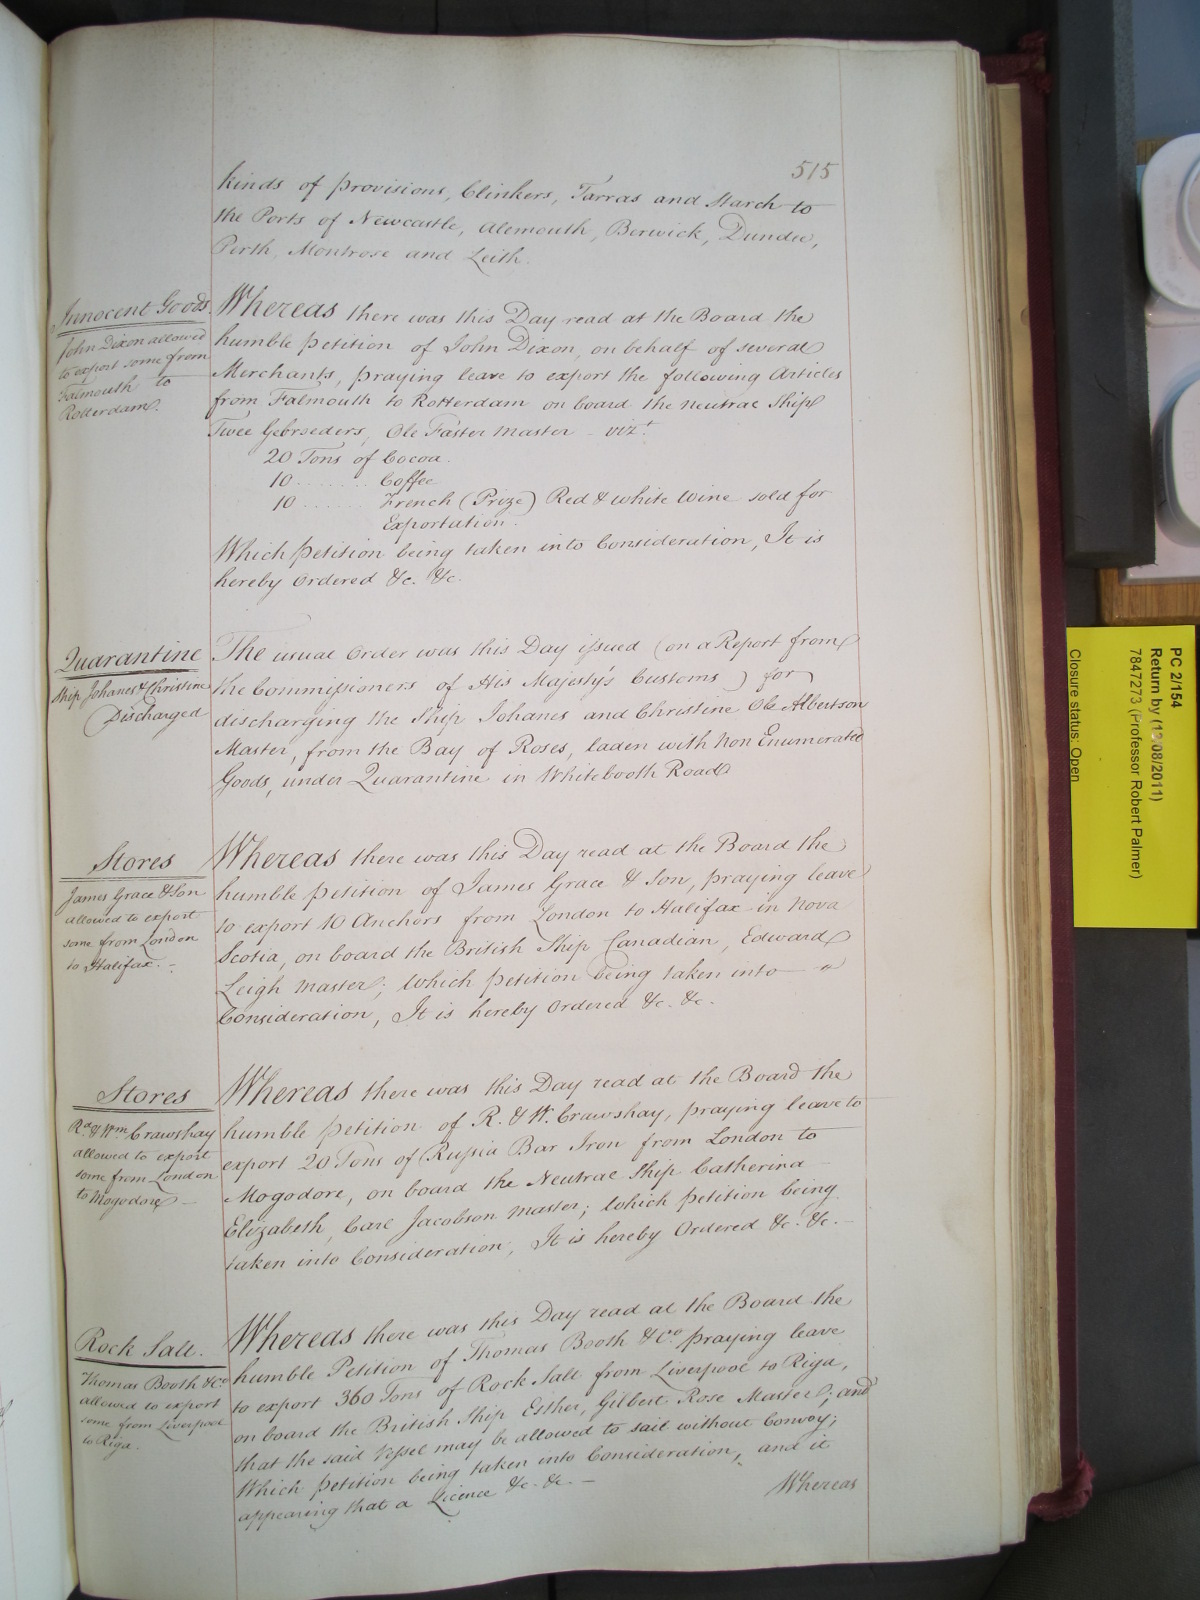 515
kinds of provisions, Clinkers, Tarras and Starch to
the Ports of Newcastle, Alemouth, Berwick, Dundee,
Perth, Montrose and Leith.
Innocent Goods.
John Dixon allowed
to export some from
Falmouth to
Rotterdam.
Whereas there was this Day read at the Board the
humble petition of John Dixon, on behalf of several
Merchants, praying leave to export the following Articles
from Falmouth to Rotterdam on board the neutral Ship
Twee Gebroeders, Ole Faster master - vizt.
20 Tons of Cocoa.
10 ........ Coffee
10 ...... French (Prize) Red & white Wine sold for
Exportation.
Which petition being taken into Consideration, It is
hereby Ordered &c. &c.
Quarantine
Ship Johanes & Christine
Discharged
The usual Order was this Day issued (on a Report from
the Commissioners of His Majesty's Customs) for
discharging the Ship Johanes and Christine Ole Albertson
Master, from the Bay of Roses, laden with non Enumerated
Goods, under Quarantine in Whitebooth Road
Stores
James Grace & Son
allowed to export
some from London
to Halifax. -
Whereas there was this Day read at the Board the
humble petition of James Grace & Son, praying leave
to export 10 Anchors from London to Halifax in Nova
Scotia, on board the British Ship Canadian, Edward
Leigh master; Which petition being taken into
Consideration, It is hereby Ordered &c. &c.
Stores
Rd. & Wm. Crawshay
allowed to export
some from London
to Mogodore -
Whereas there was this Day read at the Board the
humble petition of R. & W. Crawshay, praying leave to
export 20 Tons of Russia Bar Iron from London to
Mogodore, on board the Neutral Ship Catherina
Elizabeth, Carl Jacobson master; Which petition being
taken into Consideration, It is hereby Ordered &c. &c. -
Rock Salt.
Thomas Booth & Co.
allowed to export
some from Liverpool
to Riga.
Whereas there was this Day read at the Board the
humble Petition of Thomas Booth & Co. praying leave
to export 360 Tons of Rock Salt from Liverpool to Riga,
on board the British Ship Esther, Gilbert Rose Master; and
that the said Vessel may be allowed to sail without Convoy;
Which petition being taken into Consideration, and it
appearing that a Licence &c. &c. -
Whereas
PC 2/154
Return by (12/08/2011)
7847273 (Professor Robert Palmer)
Closure status: Open